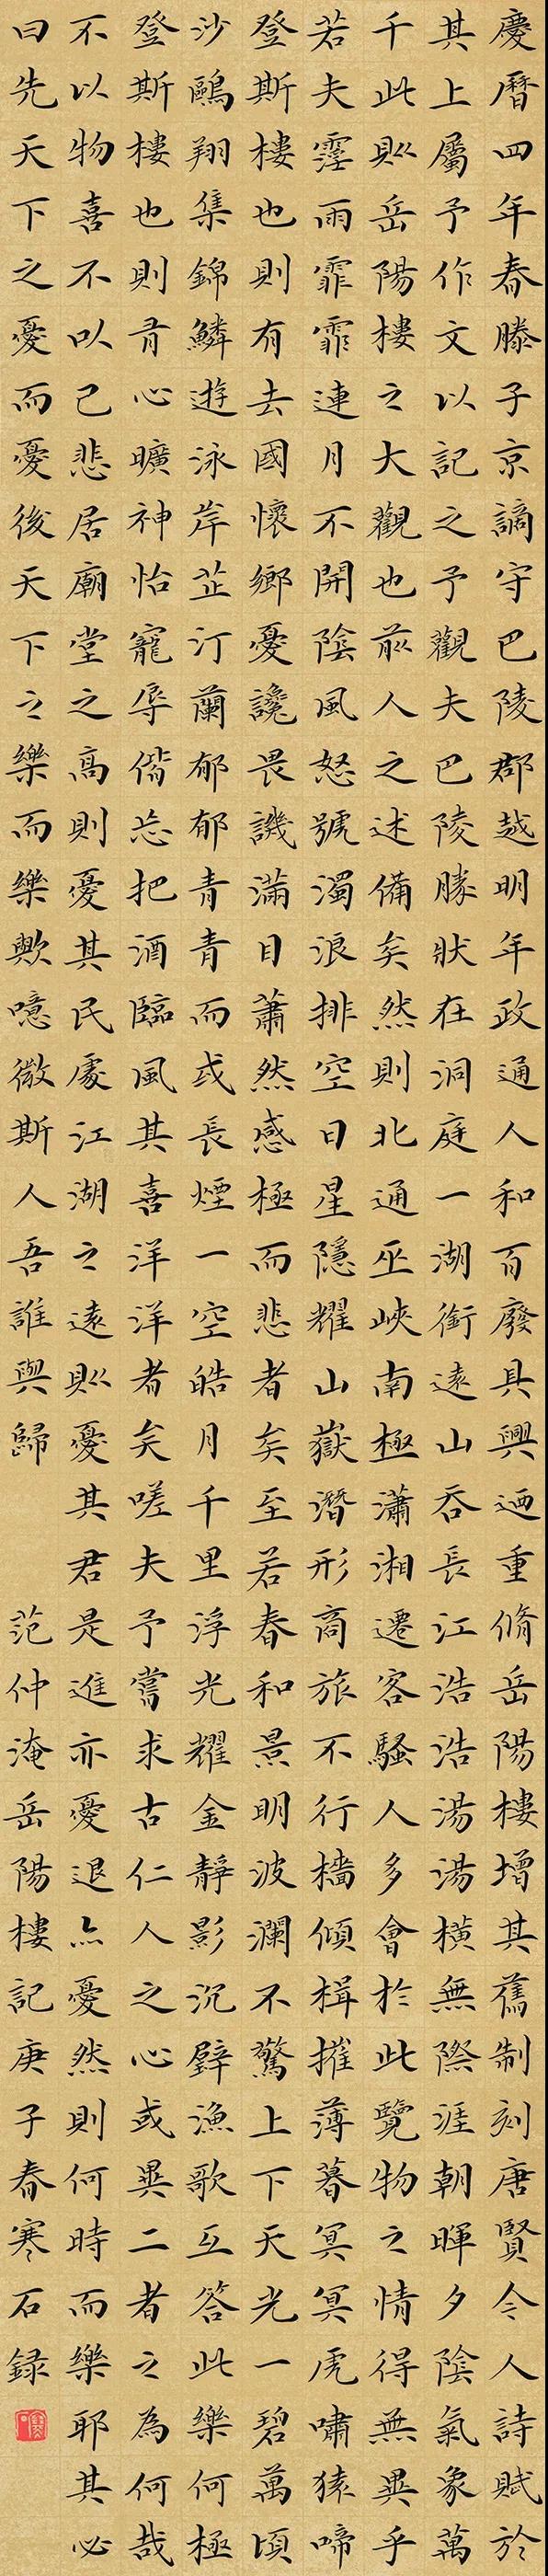 慶曆四年春滕子京謫守巴陵郡越明年政通人和百廢具興廼重脩岳陽樓增其舊制刻唐賢今人詩賦於
其上屬予作文以記之予觀夫巴陵勝狀在洞庭一湖銜遠山吞長江浩浩湯湯橫無際涯朝暉夕陰氣象萬
千此則岳陽樓之大觀也前人之述備矣然則北通巫峽南極瀟湘遷客騷人多會於此覽物之情得無異乎
若夫霪雨霏霏連月不開陰風怒號濁浪排空日星隱耀山嶽潛形商旅不行檣傾楫摧薄暮冥冥虎嘯猿啼
登斯樓也則有去國懷鄉憂讒畏譏滿目蕭然感極而悲者矣至若春和景明波瀾不驚上下天光一碧萬頃
沙鷗翔集錦鱗遊泳岸芷汀蘭郁郁青青而或長煙一空皓月千里浮光耀金靜影沉璧漁歌互答此樂何極
登斯樓也則有心曠神怡寵辱偕忘把酒臨風其喜洋洋者矣嗟夫予嘗求古仁人之心或異二者之為何哉
不以物喜不以己悲居廟堂之高則憂其民處江湖之遠則憂其君是進亦憂退亦憂然則何時而樂耶其必
曰先天下之憂而憂後天下之樂而樂歟噫微斯人吾誰與歸 范仲淹岳陽樓記庚子春寒石録